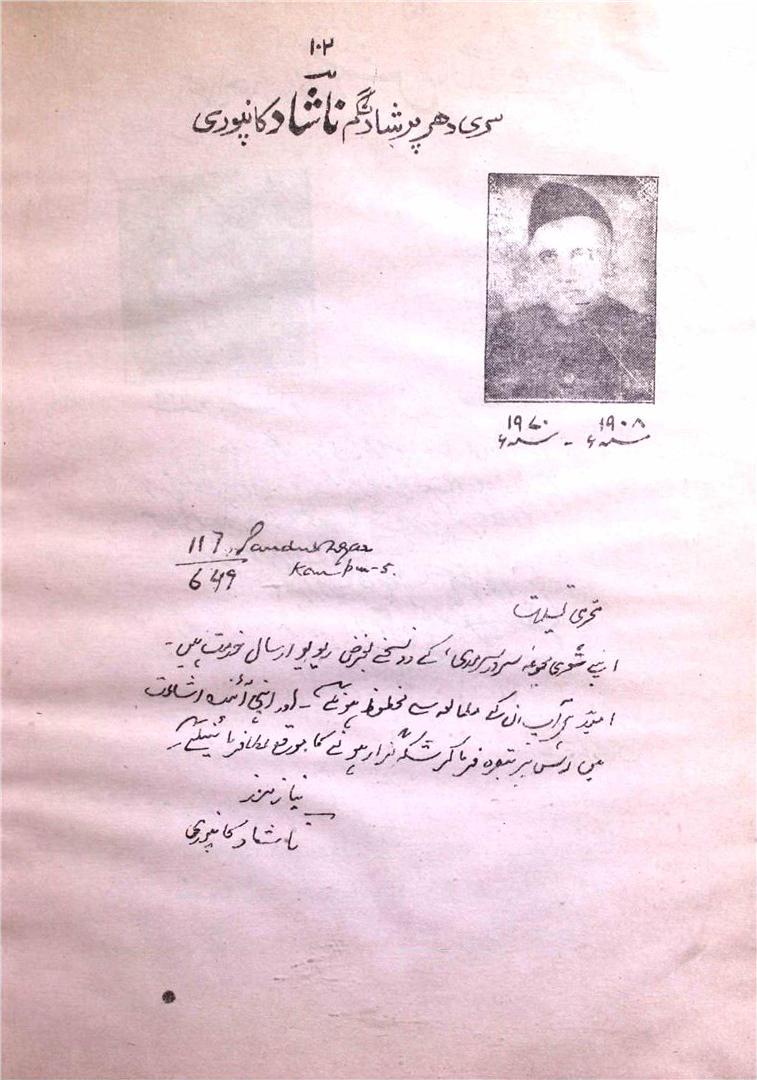 ۱۰۲
سری دھر پرشاد نگم ناشاد کانپوری
۱۹۰۸ء - ۱۹۷۰ء
117/649 Pandu Nagar
Kanpur-5.
محترمی تسلیمات
اپنے شعری مجموعہ 'سرود سرمدی' کے دو نسخے بغرض ریویو ارسال خدمت ہیں۔
امید ہے آپ ان کے مطالعہ سے محظوظ ہونگے۔ اور اپنی آئندہ اشاعت
میں اس پر تبصرہ فرما کر شکر گزار ہونے کا موقع عطا فرمائینگے۔
نیازمند
ناشاد کانپوری